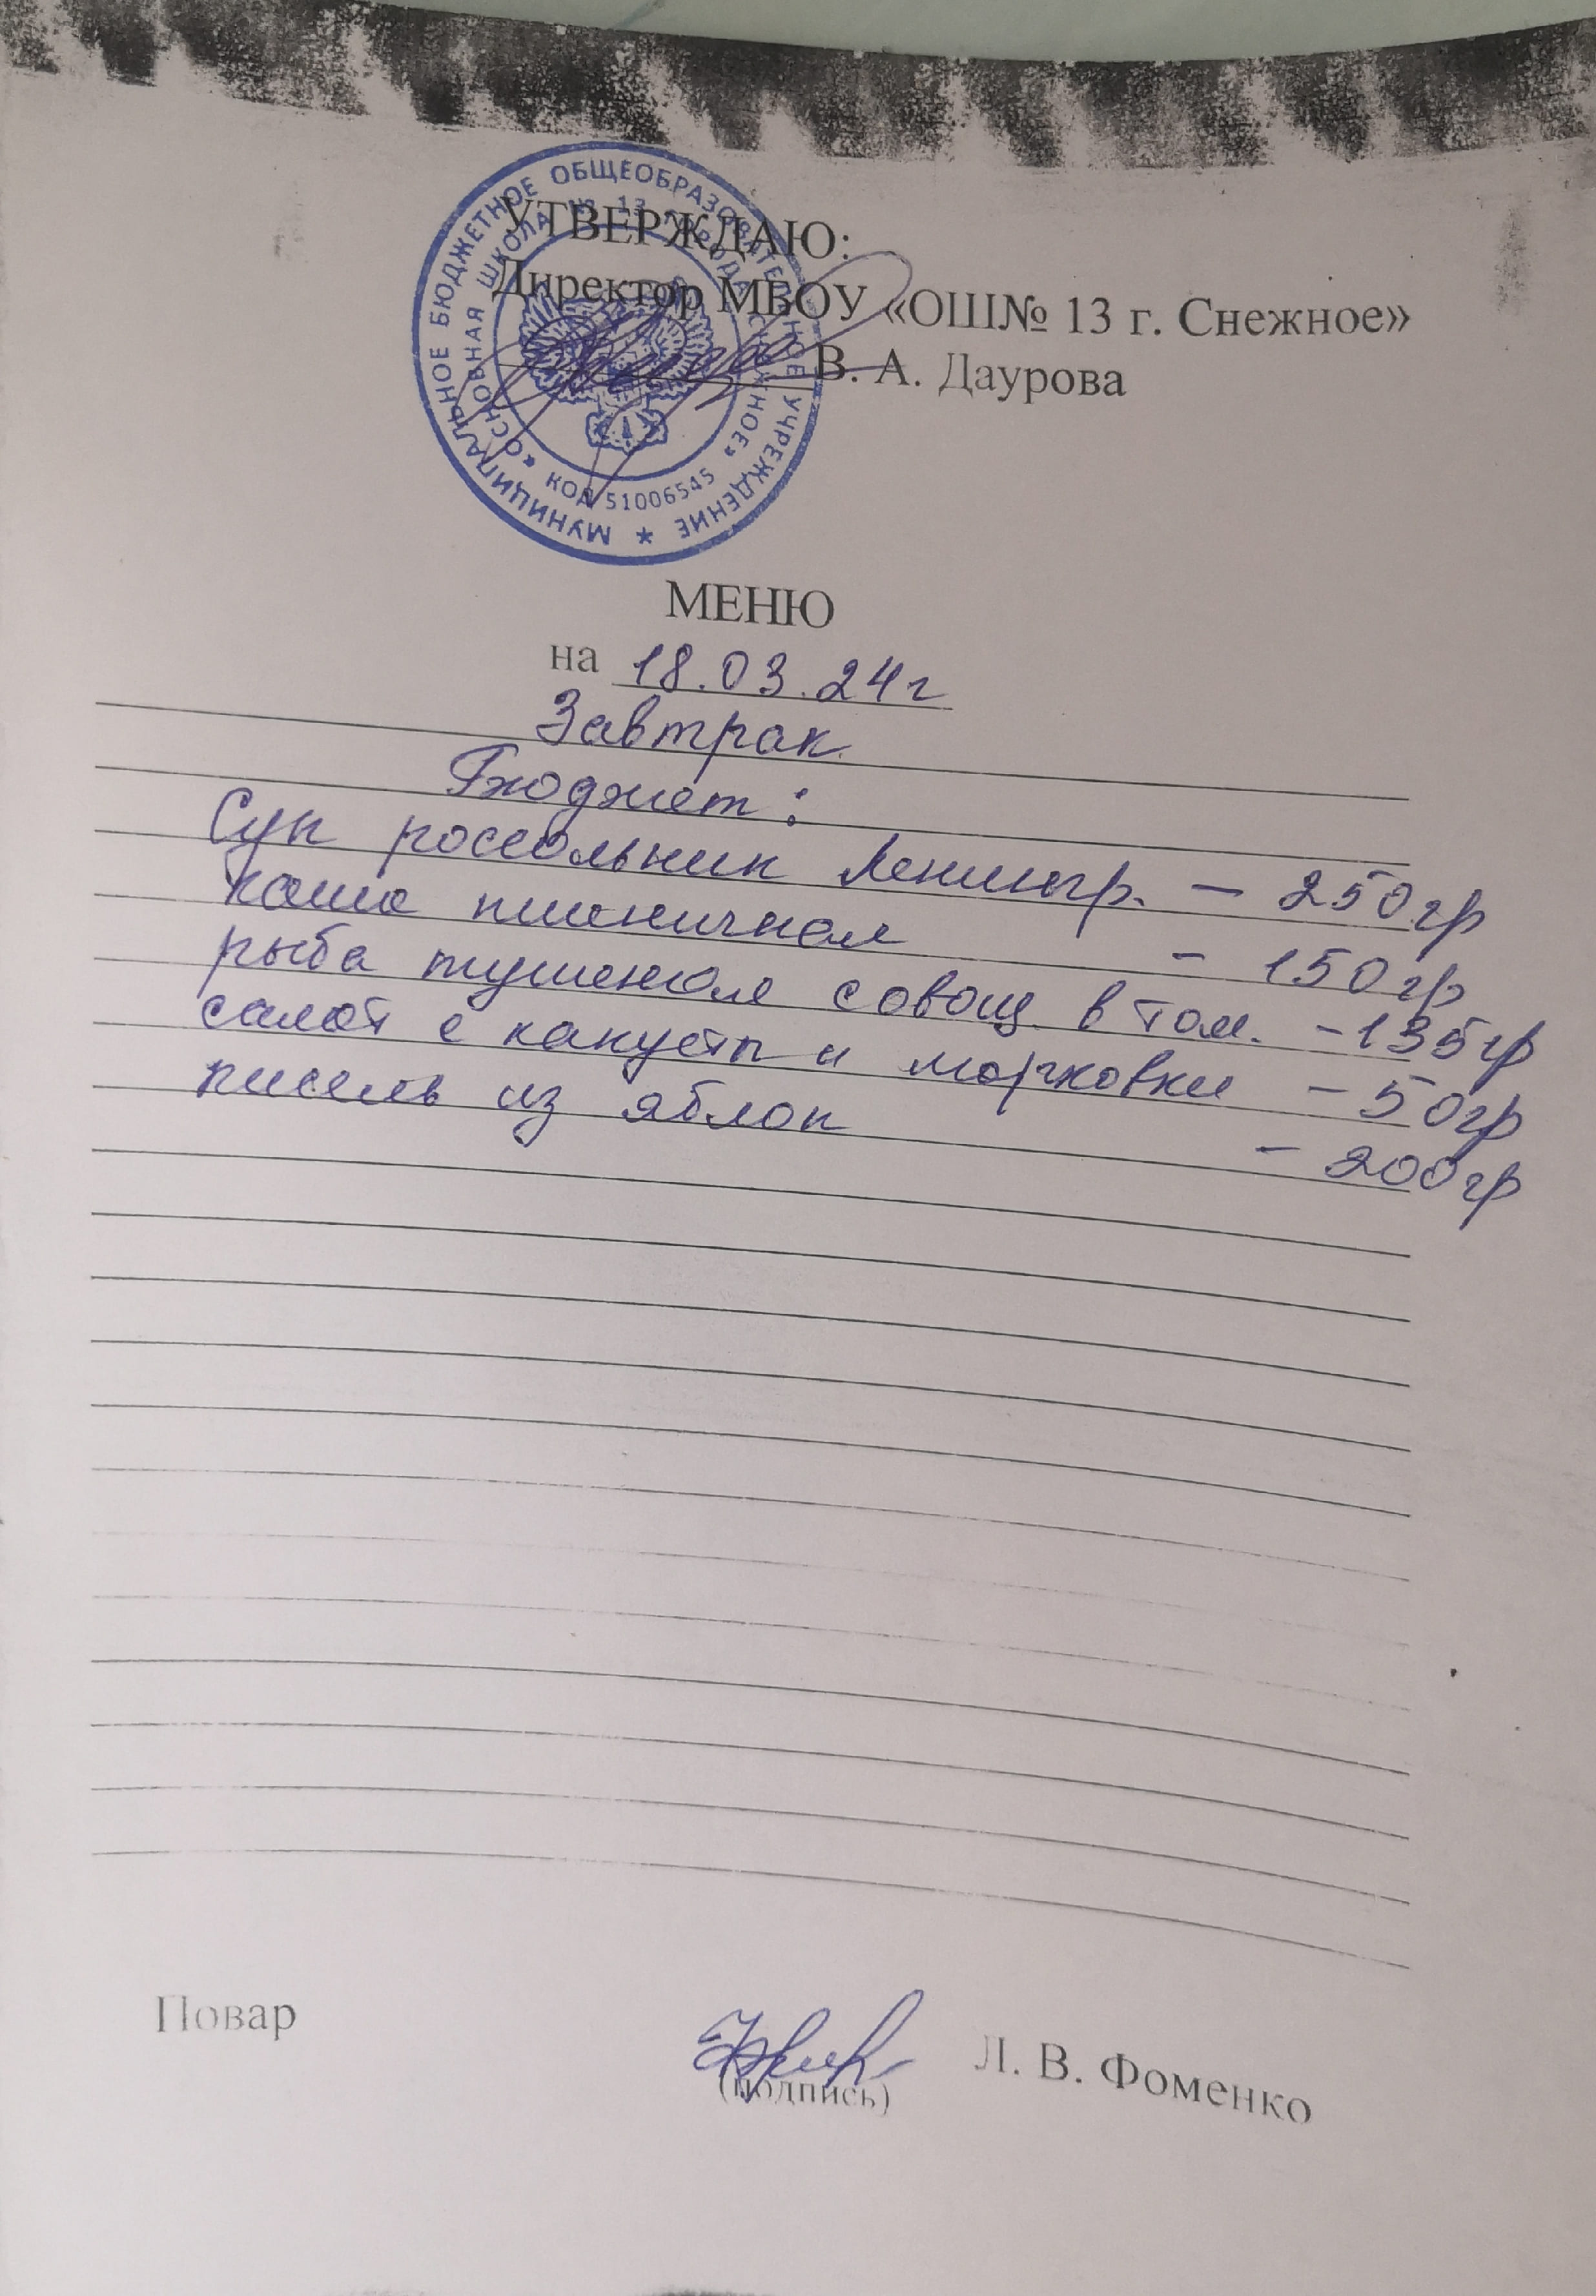 МУНИЦИПАЛЬНОЕ БЮДЖЕТНОЕ ОБЩЕОБРАЗОВАТЕЛЬНОЕ УЧРЕЖДЕНИЕ
«ОСНОВНАЯ ШКОЛА № 13 ГОРОДА СНЕЖНОЕ»
КОД 51006545
УТВЕРЖДАЮ:
Директор МБОУ «ОШ№ 13 г. Снежное»
В. А. Даурова
МЕНЮ
на 18.03.24г
Завтрак.
Бюджет:
Суп россольник Ленингр. - 250гр
каша пшеничная - 150гр
рыба тушеная с овощ. в том. - 135гр
салат с капусты и моркови - 50гр
кисель из яблок - 200гр
Повар
(подпись)
Л. В. Фоменко